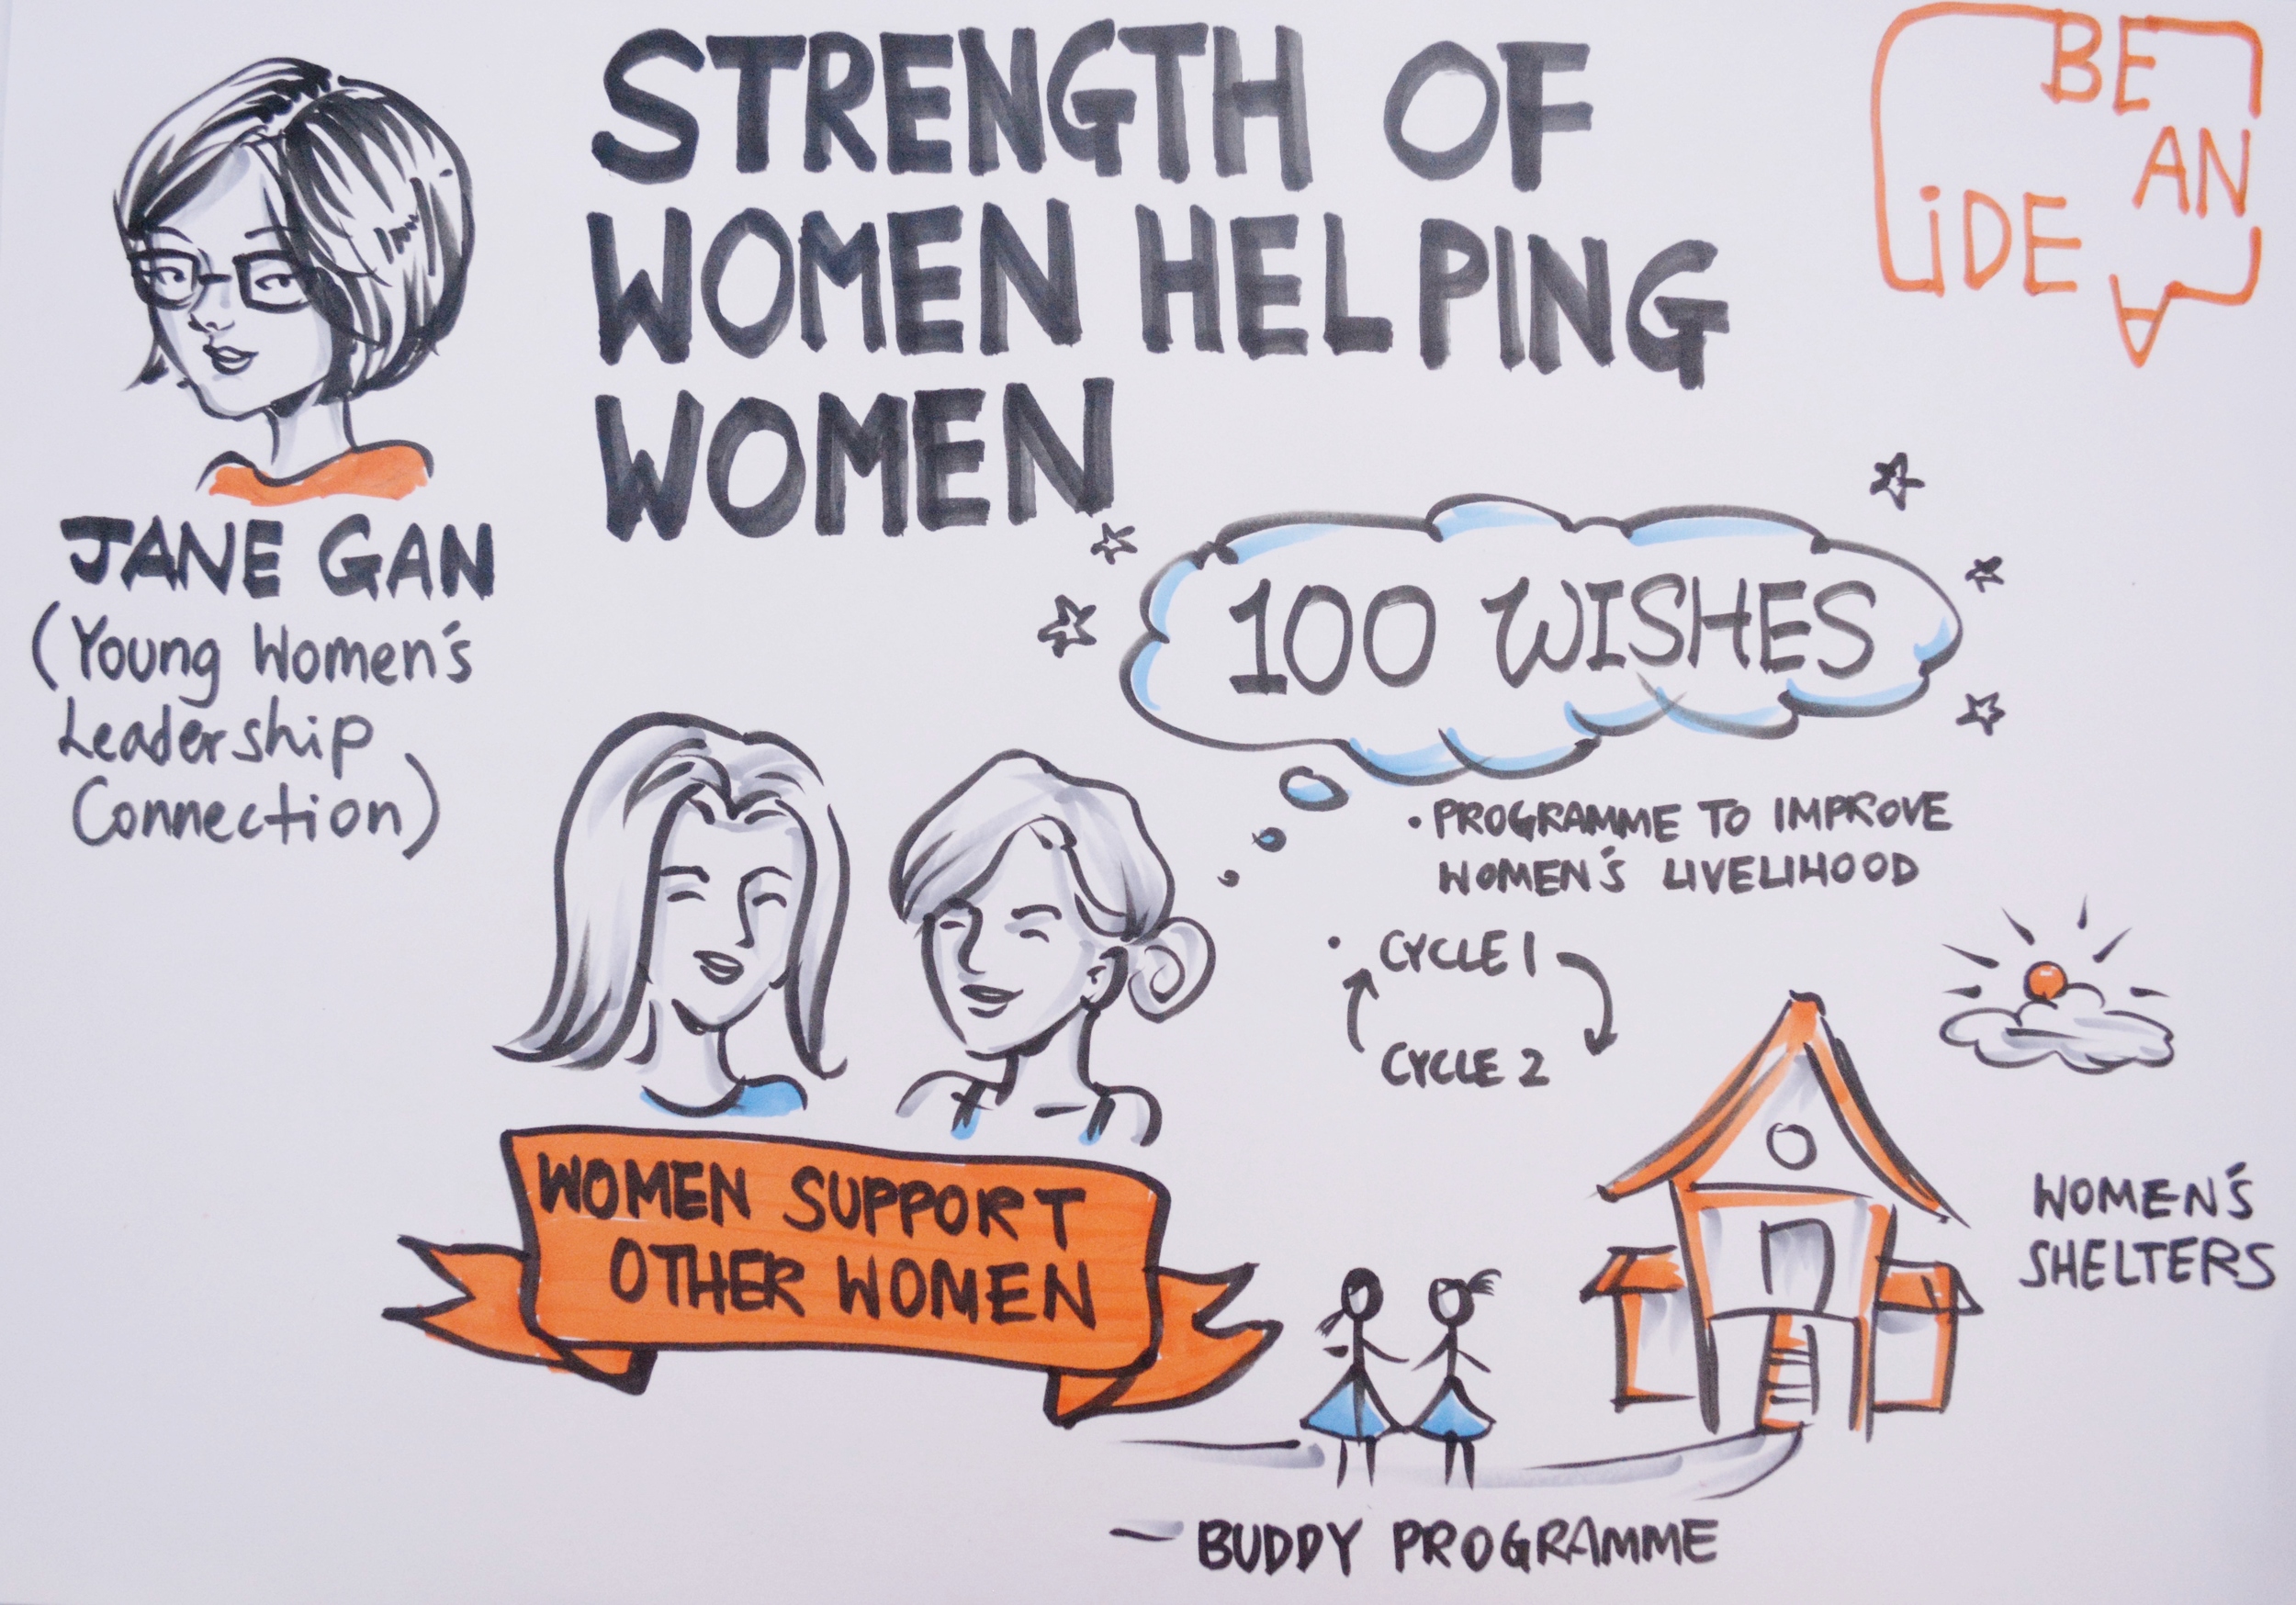 STRENGTH OF
WOMEN HELPING
WOMEN
BE
AN
iDEA
JANE GAN
(Young Women's
Leadership
Connection)
100 WISHES
• PROGRAMME TO IMPROVE
WOMEN'S LIVELIHOOD
• CYCLE 1
CYCLE 2
WOMEN SUPPORT
OTHER WOMEN
WOMEN'S
SHELTERS
— BUDDY PROGRAMME